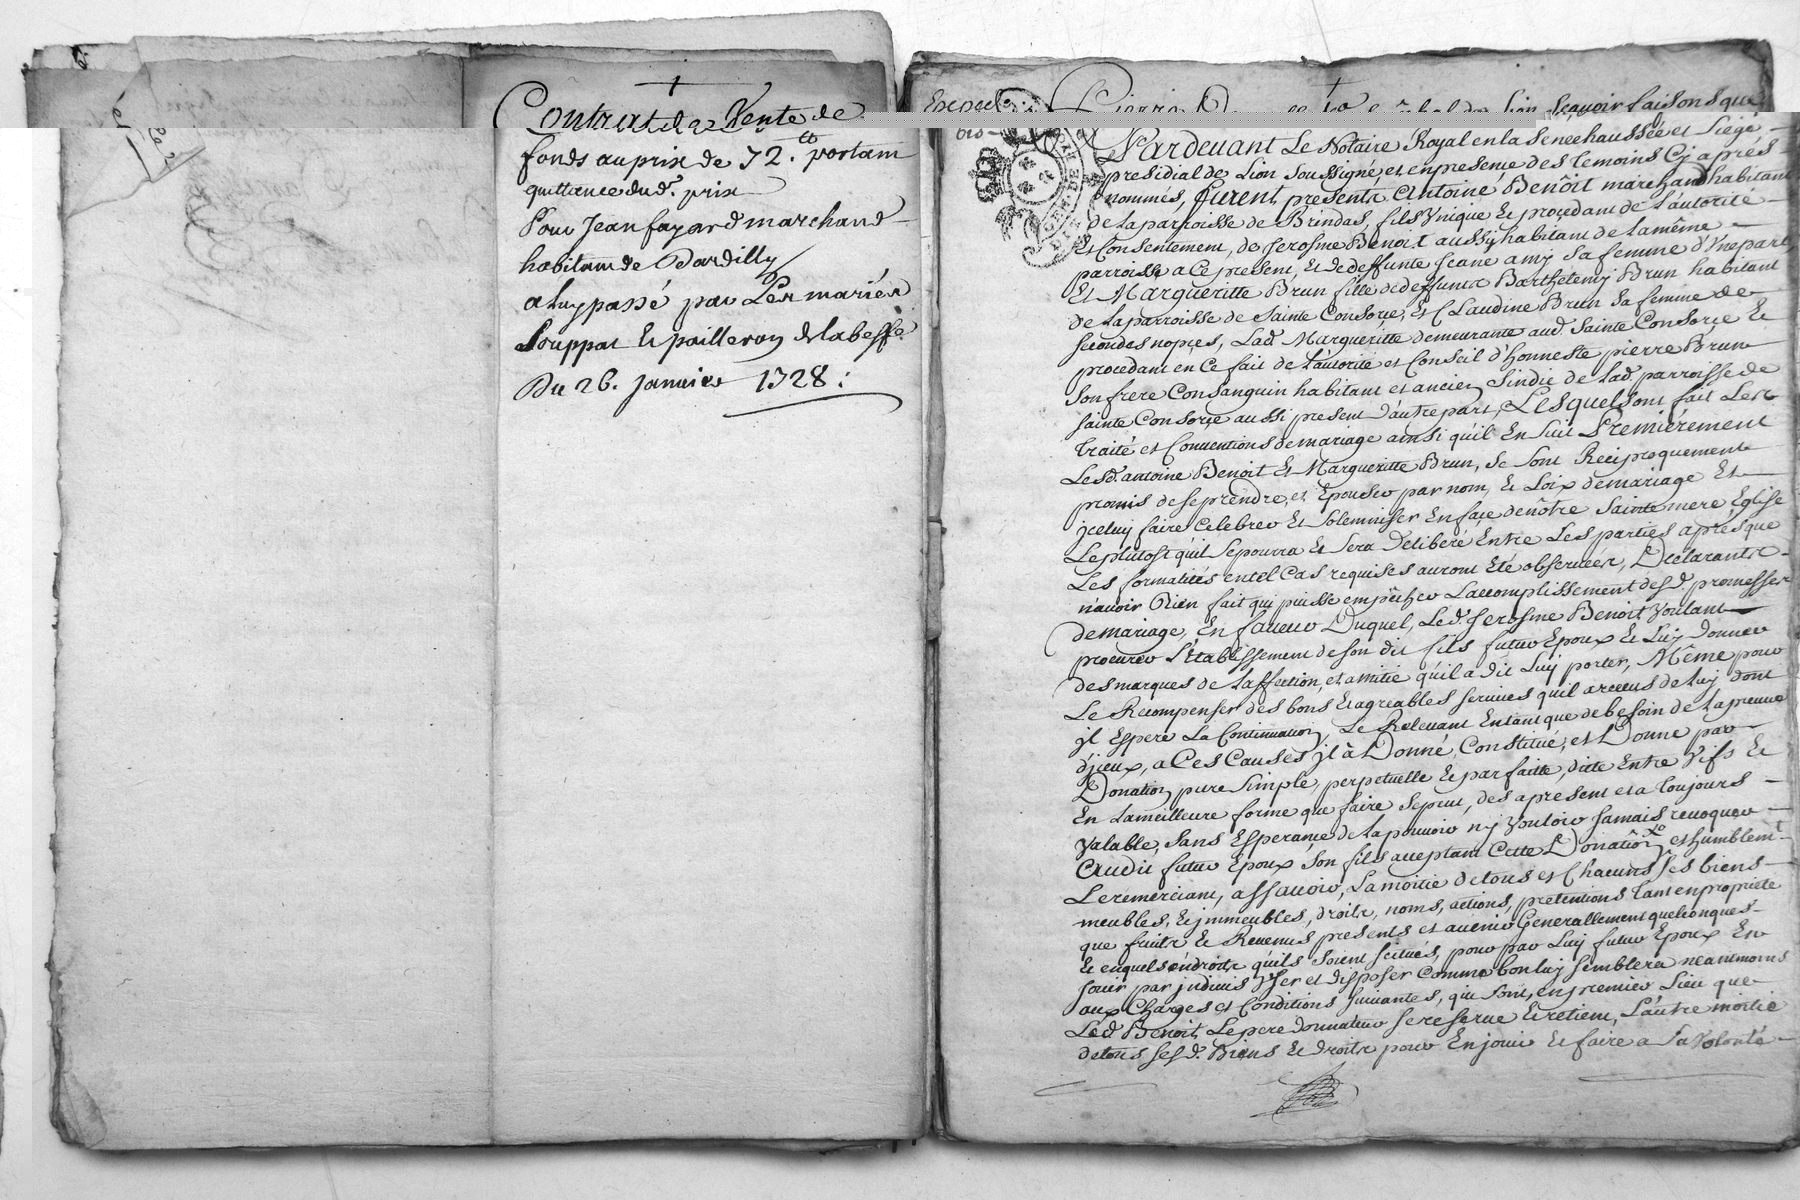 Contrat de Vente de
fonds au prix de 72.tt portant
quittance dud. prix
Pour Jean fayard marchand
habitant de Dardilly
a luy passé par Les mariés
Souppat et pailleron de labesse
Du 26. Janvier 1728 :
sçavoir faisons que
Pardevant Le Notaire Royal en la Senechaussée et Siege
presidial de Lion soussigné, et en presence des temoins Cy aprés
nommés, furent presents Antoine Benôit marchand habitant
de la parroisse de Brindas, fils Vnique et procedant de l'autorité
et Consentement, de Jerosme Benoit aussy habitant de la même
parroisse a Ce present, et de deffunte Jeane amy sa femme d'Vne part
Et Margueritte Brun fille de deffunct Barthelemy Brun habitant
de la parroisse de Sainte Consorce, et Claudine Brun sa femme de
secondes nopces, Lad. Margueritte demeurante aud. Sainte Consorce et
procedant en Ce fait de l'autorité et Conseil d'honneste pierre Brun
son frere Consanguin habitant et ancien Sindic de lad. parroisse de
sainte Consorce aussi present d'autre part, Lesquels ont fait Les
traité et Conventions de mariage ainsi qu'il En suit Premiérement
Lesd. antoine Benoit et Margueritte Brun, se sont Reciproquement
promis de se prendre, et Epouser par nom, et Loix de mariage Et
jceluy faire Celebrer Et Solemniser En face de nôtre Sainte mere Eglise
Le plûtost qu'il se pourra Et sera Déliberé Entre Les parties aprés que
Les formalités en tel Cas requises auront Eté observées, Déclarants
n'avoir Rien fait qui puisse empêcher L'accomplissement desd. promesses
de mariage, En faveur Duquel, Led. Jerosme Benoit Voulant
procurer L'Etablissement de son dit fils futur Epoux Et Luy Donner
des marques de l'affection, et amitié qu'il a dit Luy porter, Même pour
Le Recompenser des bons et agreables services qu'il a receus de luy dont
jl Espere La Continuation, Le Relevant En tant que de besoin de la preuve
d'jceux, a Ces Causes jl à Donné, Constitué, et Donne par
Donation pure Simple, perpetuelle et parfaitte, ditte Entre Vifs Et
En la meilleure forme que faire se peut, des a present et a toujours
Valable, sans Esperance de la pouvoir ny Vouloir Jamais revoquer
Audit futur Epoux son fils acceptant Cette Donation et humblemt.
Le remerciant, assavoir, la moitié de tous et Chacuns ses biens
meubles, et jmmeubles, droits, noms, actions, pretentions tant en proprieté
que fruits et Revenus presents et avenir Generallement quelconques
Et en quels endroits qu'ils soient scitués, pour par Luy futur Epoux En
jouir par jndivis Vser et disposer Comme bon luy semblera neantmoins
aux Charges et Conditions suivantes, qui sont, en premier Lieu que
Led. Benoit Le pere donnateur se reserve et retient, L'autre moitié
de tous sesd. Biens et droits pour En jouir et faire a sa Volonté